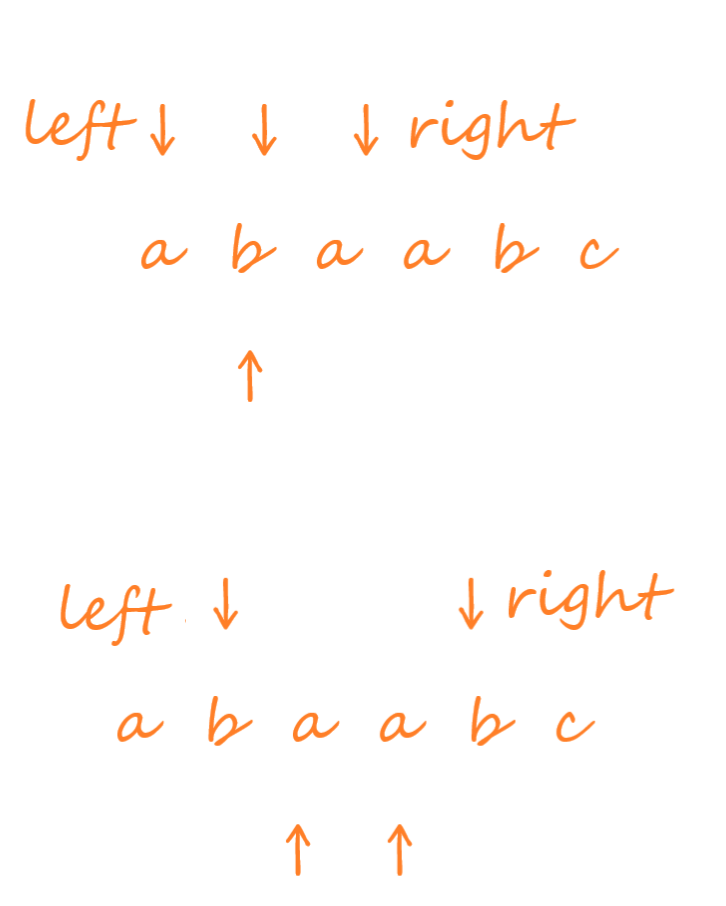 left ↓ ↓ ↓ right
a b a a b c
↑
left ↓ ↓ right
a b a a b c
↑ ↑